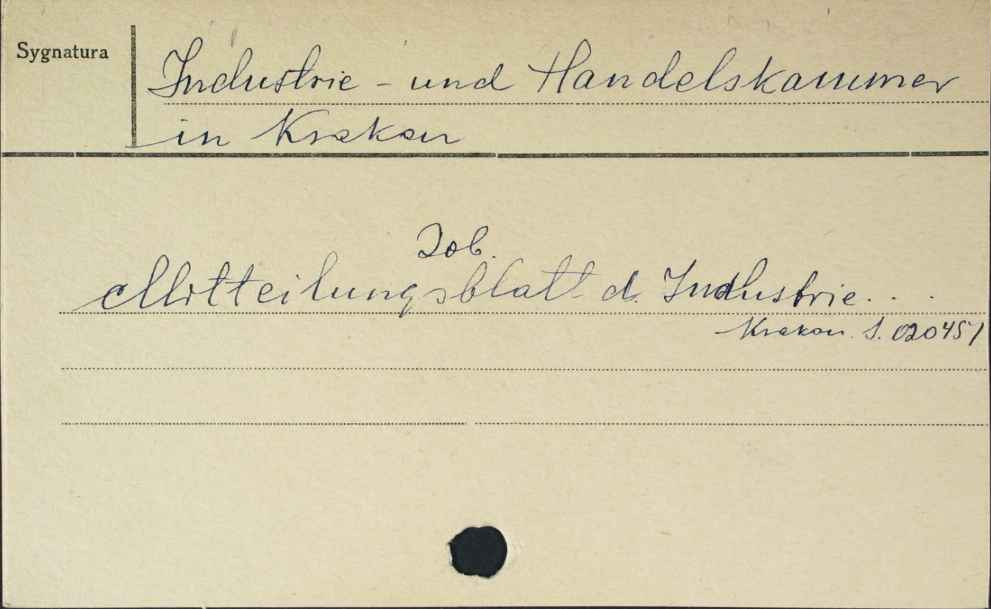 Sygnatura
Industrie - und Handelskammer
in Krakau
Zob.
Mitteilungsblatt d. Industrie...
Krakau. S. 020451